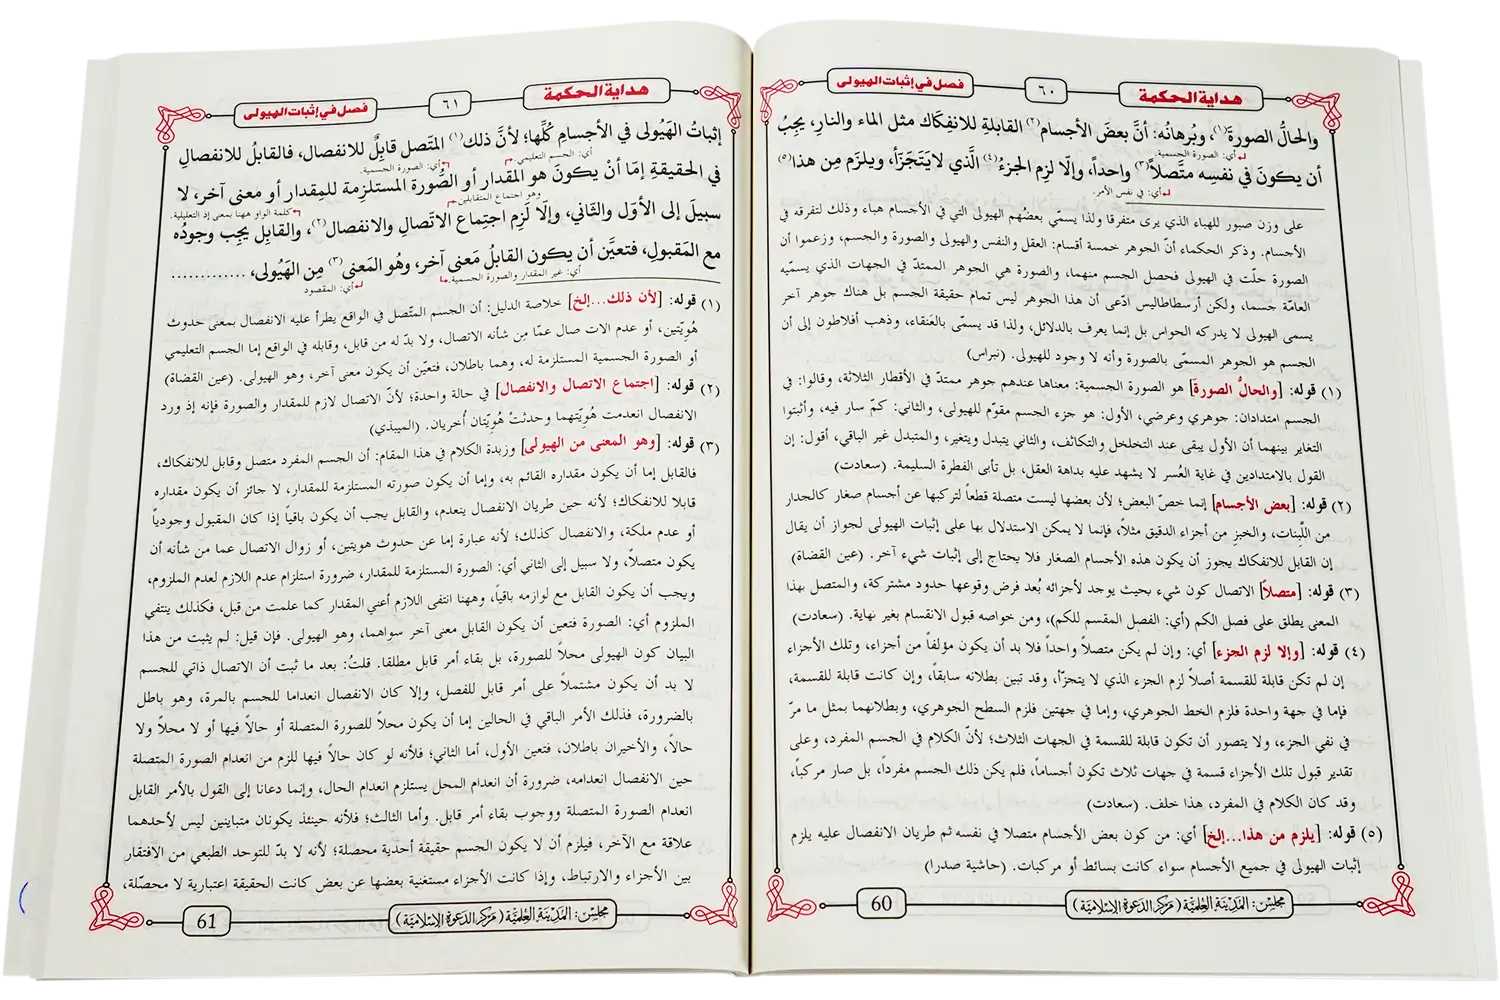 هداية الحكمة
٦٠
فصل في إثبات الهيولى
والحالُّ الصورةَ(١)، وبُرهانُه: أنَّ بعضَ الأجسام(٢) القابلةِ للانفِكَاك مثل الماء والنارِ، يجِبُ
أي: الصورة الجسمية.
أن يكونَ في نفسِه متَّصلاً(٣) واحداً، وإلّا لزِم الجزءُ(٤) الَّذي لايَتَجَزَّأ، ويلزَم مِن هذا(٥)
أي: في نفس الأمر.
على وزن صبور للهباء الذي يرى متفرقا ولذا يسمّي بعضُهم الهيولى التي في الأجسام هباء وذلك لتفرقه في
الأجسام. وذكر الحكماء أنّ الجوهر خمسة أقسام: العقل والنفس والهيولى والصورة والجسم، وزعموا أن
الصورة حلّت في الهيولى فحصل الجسم منهما، والصورة هي الجوهر الممتدّ في الجهات الذي يسمّيه
العامّة جسما، ولكن أرسطاطاليس ادّعى أن هذا الجوهر ليس تمام حقيقة الجسم بل هناك جوهر آخر
يسمى الهيولى لا يدركه الحواس بل إنما يعرف بالدلائل، ولذا قد يسمّى بالعَنقاء، وذهب أفلاطون إلى أن
الجسم هو الجوهر المسمّى بالصورة وأنه لا وجود للهيولى. (نبراس)
(١) قوله: [والحالُّ الصورةَ] هو الصورة الجسمية: معناها عندهم جوهر ممتدّ في الأقطار الثلاثة، وقالوا: في
الجسم امتدادان: جوهري وعرضي، الأول: هو جزء الجسم مقوّم للهيولى، والثاني: كمّ سار فيه، وأثبتوا
التغاير بينهما أن الأول يبقى عند التخلخل والتكاثف، والثاني يتبدل ويتغير، والمتبدل غير الباقي، أقول: إن
القول بالامتدادين في غاية العُسر لا يشهد عليه بداهة العقل، بل تأبى الفطرة السليمة. (سعادت)
(٢) قوله: [بعض الأجسام] إنما خصّ البعض؛ لأن بعضها ليست متصلة قطعاً لتركبها عن أجسام صغار كالجدار
من اللَّبِنات، والخبز من أجزاء الدقيق مثلاً، فإنما لا يمكن الاستدلال بها على إثبات الهيولى لجواز أن يقال
إن القابل للانفكاك يجوز أن يكون هذه الأجسام الصغار فلا يحتاج إلى إثبات شيء آخر. (عين القضاة)
(٣) قوله: [متصلاً] الاتصال كون شيء بحيث يوجد لأجزائه بُعد فرض وقوعها حدود مشتركة، والمتصل بهذا
المعنى يطلق على فصل الكم (أي: الفصل المقسم للكم)، ومن خواصه قبول الانقسام بغير نهاية. (سعادت)
(٤) قوله: [وإلا لزم الجزء] أي: وإن لم يكن متصلاً واحداً فلا بد أن يكون مؤلفاً من أجزاء، وتلك الأجزاء
إن لم تكن قابلة للقسمة أصلاً لزم الجزء الذي لا يتجزّأ، وقد تبين بطلانه سابقاً، وإن كانت قابلة للقسمة،
فإما في جهة واحدة فلزم الخط الجوهري، وإما في جهتين فلزم السطح الجوهري، وبطلانهما بمثل ما مرّ
في نفي الجزء، ولا يتصور أن تكون قابلة للقسمة في الجهات الثلاث؛ لأنّ الكلام في الجسم المفرد، وعلى
تقدير قبول تلك الأجزاء قسمة في جهات ثلاث تكون أجساماً، فلم يكن ذلك الجسم مفرداً، بل صار مركباً،
وقد كان الكلام في المفرد، هذا خلف. (سعادت)
(٥) قوله: [يلزم من هذا...إلخ] أي: من كون بعض الأجسام متصلا في نفسه ثم طريان الانفصال عليه يلزم
إثبات الهيولى في جميع الأجسام سواء كانت بسائط أو مركبات. (حاشية صدرا)
مجلس: المدينة العلمية (مركز الدعوة الإسلامية)
60
هداية الحكمة
٦١
فصل في إثبات الهيولى
إثباتُ الهَيُولى في الأجسامِ كُلِّها؛ لأنَّ ذلك(١) المتَّصل قابِلٌ للانفصال، فالقابلُ للانفصالِ
أي: الجسم التعليمي.
أي: الصورة الجسمية.
في الحقيقةِ إمّا أنْ يكونَ هو المقدار أو الصُّورة المستلزِمة للمِقدار أو معنى آخر، لا
وهو اجتماع المتقابلين.
كلمة الواو ههنا بمعنى إذ التعليلية.
سبيلَ إلى الأوّل والثّاني، وإلّا لَزِم اجتِماع الاتّصالِ والانفصال(٢)، والقابِل يجِب وجودُه
مع المَقبولِ، فتعيَّن أن يكون القابلُ مَعنى آخر، وهُو المَعنى(٣) مِن الهَيُولى، .............
أي: غير المقدار والصورة الجسمية.
أي: المقصود
(١) قوله: [لأن ذلك...إلخ] خلاصة الدليل: أن الجسم المتّصل في الواقع يطرأ عليه الانفصال بمعنى حدوث
هُوِيّتين، أو عدم الات صال عمّا مِن شأنه الاتصال، ولا بدّ له من قابل، وقابله في الواقع إما الجسم التعليمي
أو الصورة الجسمية المستلزمة له، وهما باطلان، فتعيّن أن يكون معنى آخر، وهو الهيولى. (عين القضاة)
(٢) قوله: [اجتماع الاتصال والانفصال] في حالة واحدة؛ لأنّ الاتصال لازم للمقدار والصورة فإنه إذ ورد
الانفصال انعدمت هُوِيّتهما وحدثتْ هُوِيّتان أُخريان. (الميبذي)
(٣) قوله: [وهو المعنى من الهيولى] وزبدة الكلام في هذا المقام: أن الجسم المفرد متصل وقابل للانفكاك،
فالقابل إما أن يكون مقداره القائم به، وإما أن يكون صورته المستلزمة للمقدار، لا جائز أن يكون مقداره
قابلا للانفكاك؛ لأنه حين طريان الانفصال ينعدم، والقابل يجب أن يكون باقياً إذا كان المقبول وجودياً
أو عدم ملكة، والانفصال كذلك؛ لأنه عبارة إما عن حدوث هويتين، أو زوال الاتصال عما من شأنه أن
يكون متصلاً، ولا سبيل إلى الثاني أي: الصورة المستلزمة للمقدار، ضرورة استلزام عدم اللازم لعدم الملزوم،
ويجب أن يكون القابل مع لوازمه باقياً، وههنا انتفى اللازم أعني المقدار كما علمت من قبل، فكذلك ينتفي
الملزوم أي: الصورة فتعين أن يكون القابل معنى آخر سواهما، وهو الهيولى. فإن قيل: لم يثبت من هذا
البيان كون الهيولى محلاً للصورة، بل بقاء أمر قابل مطلقا. قلتُ: بعد ما ثبت أن الاتصال ذاتي للجسم
لا بد أن يكون مشتملاً على أمر قابل للفصل، وإلا كان الانفصال انعداما للجسم بالمرة، وهو باطل
بالضرورة، فذلك الأمر الباقي في الحالين إما أن يكون محلاً للصورة المتصلة أو حالاً فيها أو لا محلاً ولا
حالاً، والأخيران باطلان، فتعين الأول، أما الثاني؛ فلأنه لو كان حالاً فيها للزم من انعدام الصورة المتصلة
حين الانفصال انعدامه، ضرورة أن انعدام المحل يستلزم انعدام الحال، وإنما دعانا إلى القول بالأمر القابل
انعدام الصورة المتصلة ووجوب بقاء أمر قابل. وأما الثالث؛ فلأنه حينئذ يكونان متباينين ليس لأحدهما
علاقة مع الآخر، فيلزم أن لا يكون الجسم حقيقة أحدية محصلة؛ لأنه لا بدّ للتوحد الطبعي من الافتقار
بين الأجزاء والارتباط، وإذا كانت الأجزاء مستغنية بعضها عن بعض كانت الحقيقة اعتبارية لا محصّلة،
مجلس: المدينة العلمية (مركز الدعوة الإسلامية)
61